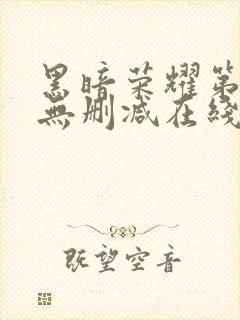 黑暗荣耀第
無删减在綫
既望空音